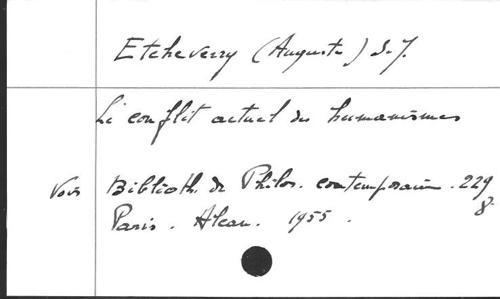 Etcheverry (Auguste) S.J.
Le conflit actuel des humanismes
Voir Biblioth. de Philos. contemporaine. 229
8
Paris. Alcan. 1955.